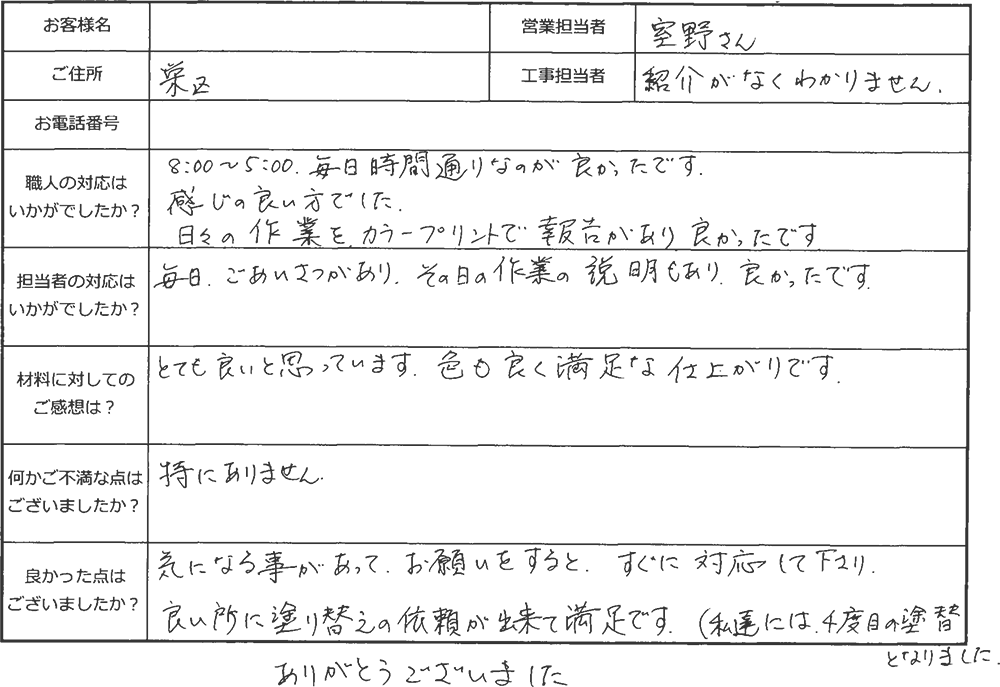 お客様名 営業担当者 室野さん
ご住所 栄区 工事担当者 紹介がなくわかりません.
お電話番号
職人の対応は
いかがでしたか？
8:00〜5:00. 毎日時間通りなのが良かったです.
感じの良い方でした.
日々の作業を、カラープリントで報告があり良かったです
担当者の対応は
いかがでしたか？
毎日. ごあいさつがあり. その日の作業の説明もあり. 良かったです.
材料に対しての
ご感想は？
とても良いと思っています. 色も良く満足な仕上がりです.
何かご不満な点は
ございましたか？
特にありません.
良かった点は
ございましたか？
気になる事があって. お願いをすると. すぐに対応して下さり.
良い所に塗り替えの依頼が出来て満足です. (私達には、4度目の塗替
となりました.
ありがとうございました